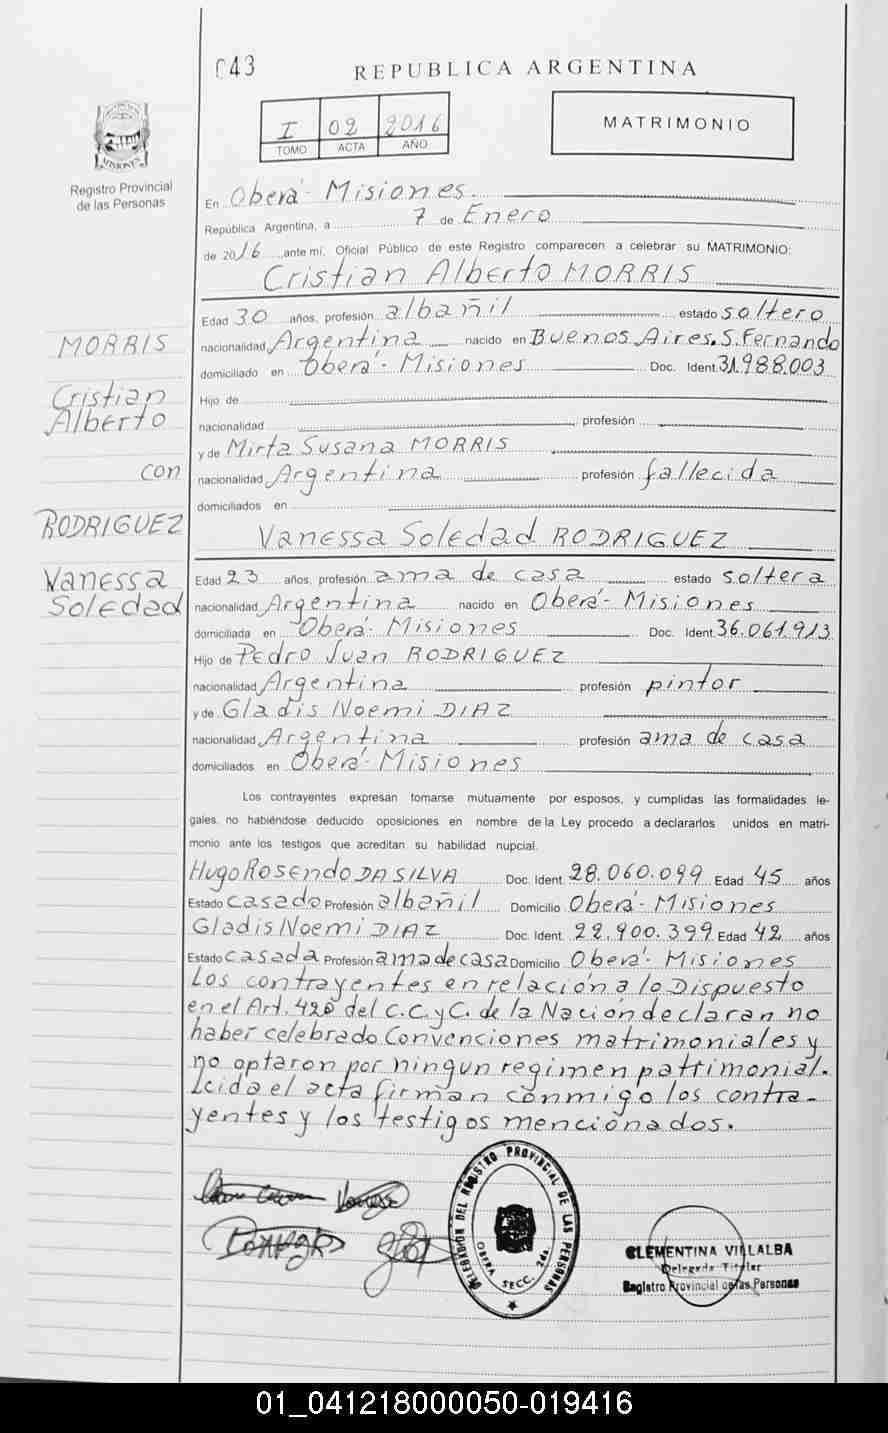 043
REPUBLICA ARGENTINA
I 02 2016
TOMO ACTA AÑO
MATRIMONIO
MISIONES
Registro Provincial
de las Personas
En Oberá - Misiones.
República Argentina, a 7 de Enero
de 2016 ante mí, Oficial Público de este Registro comparecen a celebrar su MATRIMONIO:
Cristian Alberto MORRIS
Edad 30 años, profesión albañil estado soltero
nacionalidad Argentina nacido en Buenos Aires. S. Fernando
domiciliado en Oberá - Misiones Doc. Ident. 31.988.003
Hijo de
nacionalidad profesión
y de Mirta Susana MORRIS
nacionalidad Argentina profesión fallecida
domiciliados en
MORRIS
Cristian
Alberto
con
RODRIGUEZ
Vanessa
Soledad
Vanessa Soledad RODRIGUEZ
Edad 23 años, profesión ama de casa estado soltera
nacionalidad Argentina nacido en Oberá - Misiones
domiciliada en Oberá - Misiones Doc. Ident. 36.061.913
Hijo de Pedro Juan RODRIGUEZ
nacionalidad Argentina profesión pintor
y de Gladis Noemi DIAZ
nacionalidad Argentina profesión ama de casa
domiciliados en Oberá - Misiones
Los contrayentes expresan tomarse mutuamente por esposos, y cumplidas las formalidades le-
gales, no habiéndose deducido oposiciones en nombre de la Ley procedo a declararlos unidos en matri-
monio ante los testigos que acreditan su habilidad nupcial.
Hugo Rosendo DA SILVA Doc. Ident. 28.060.099 Edad 45 años
Estado casado Profesión albañil Domicilio Oberá - Misiones
Gladis Noemi DIAZ Doc. Ident. 22.900.399 Edad 42 años
Estado casada Profesión ama de casa Domicilio Oberá - Misiones
Los contrayentes en relación a lo Dispuesto
en el Art. 420 del C.C.yC. de la Nación declaran no
haber celebrado Convenciones matrimoniales y
no optaron por ningun regimen patrimonial.
Leida el acta firman conmigo los contra-
yentes y los testigos mencionados.
DELEGACION DEL REGISTRO PROVINCIAL DE LAS PERSONAS
OBERA SECC. 2da.
CLEMENTINA VILLALBA
Delegada Titular
Registro Provincial de las Personas
01_041218000050-019416